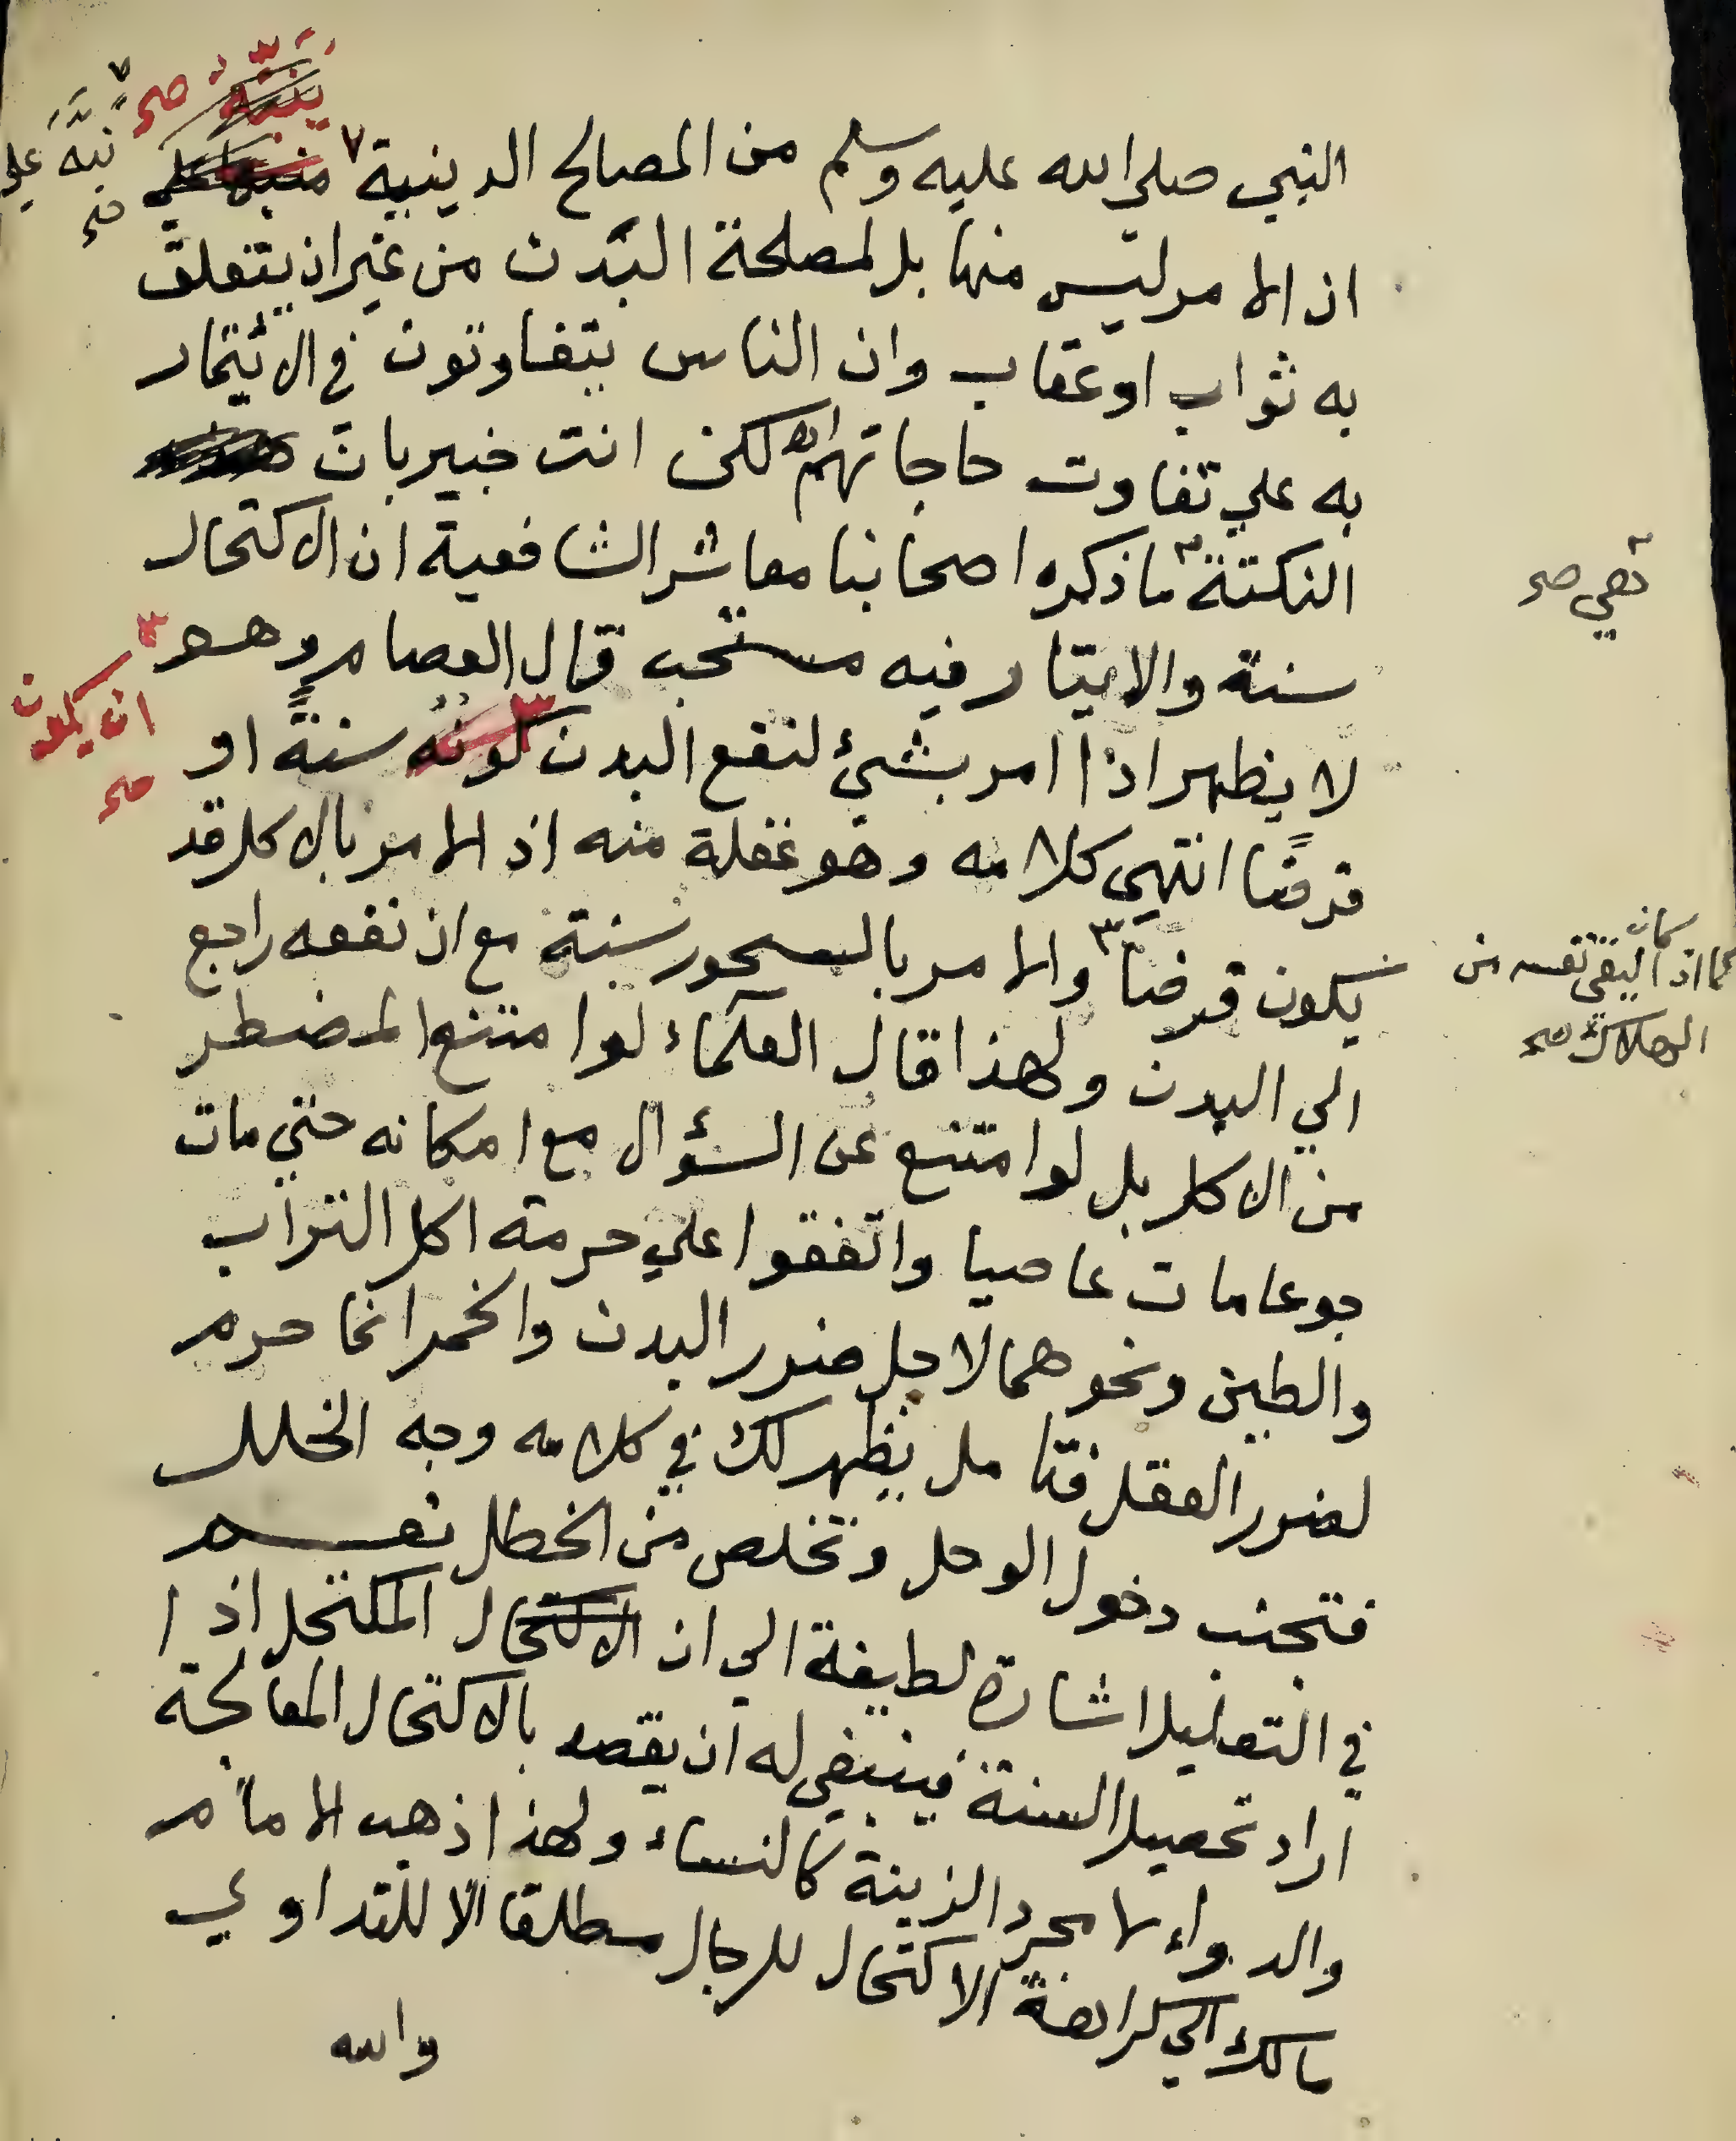 النبي صلي الله عليه وسلم من المصالح الدينية
نبه علي صح
ان الامر ليس منها بل لمصلحة البدن من غير ان يتعلق
به ثواب او عقاب وان الناس يتفاوتون في الائتمار
به علي تفاوت حاجاتهم اه لكن انت خبير بان
النكتة ما ذكره اصحابنا معاشر الشافعية ان الاكتحال
سنة والايتار فيه مستحب قال العصام وهو
لا يظهر اذا امر بشيئ لنفع البدن كونه سنةً او
ان يكون صح
فرضًا انتهي كلامه وهو غفلة منه اذ الامر بالاكل قد
يكون فرضا والامر بالسحور سنة مع ان نفعه راجع
كما اذا كان ليقي نفسه من
الهلاك صح
الي البدن ولهذا قال العلماء لو امتنع المضطر
من الاكل بل لو امتنع عن السؤال مع امكانه حتي مات
جوعا مات عاصيا واتفقوا علي حرمة اكل التراب
والطين ونحوهما لاجل ضرر البدن والخمر انما حرم
لضرر العقل فتامل يظهر لك في كلامه وجه الخلل
فتجنب دخول الوحل وتخلص من الخطل نعم
في التعليل اشارة لطيفة الي ان الاكتحال المكتحل اذا
اراد تحصيل السنة فينبغي له ان يقصد بالاكتحال المعالجة
والدواء لا مجرد الزينة كالنساء ولهذا ذهب الامام
مالك الي كراهة الاكتحال للرجال مطلقا الا للتداوي
والله